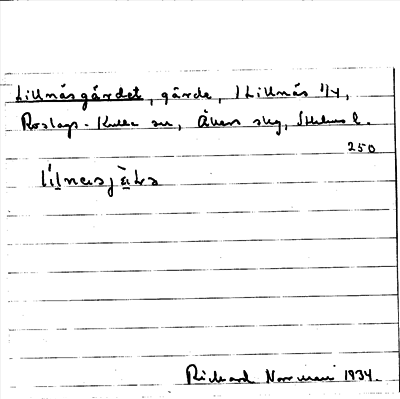 Lillnäsgärdet, gärde, 1 Lillnäs 1/4,
Roslags-Kulla sn, Åkers skg, Sthlms l.
250
Richard Norrman 1934.